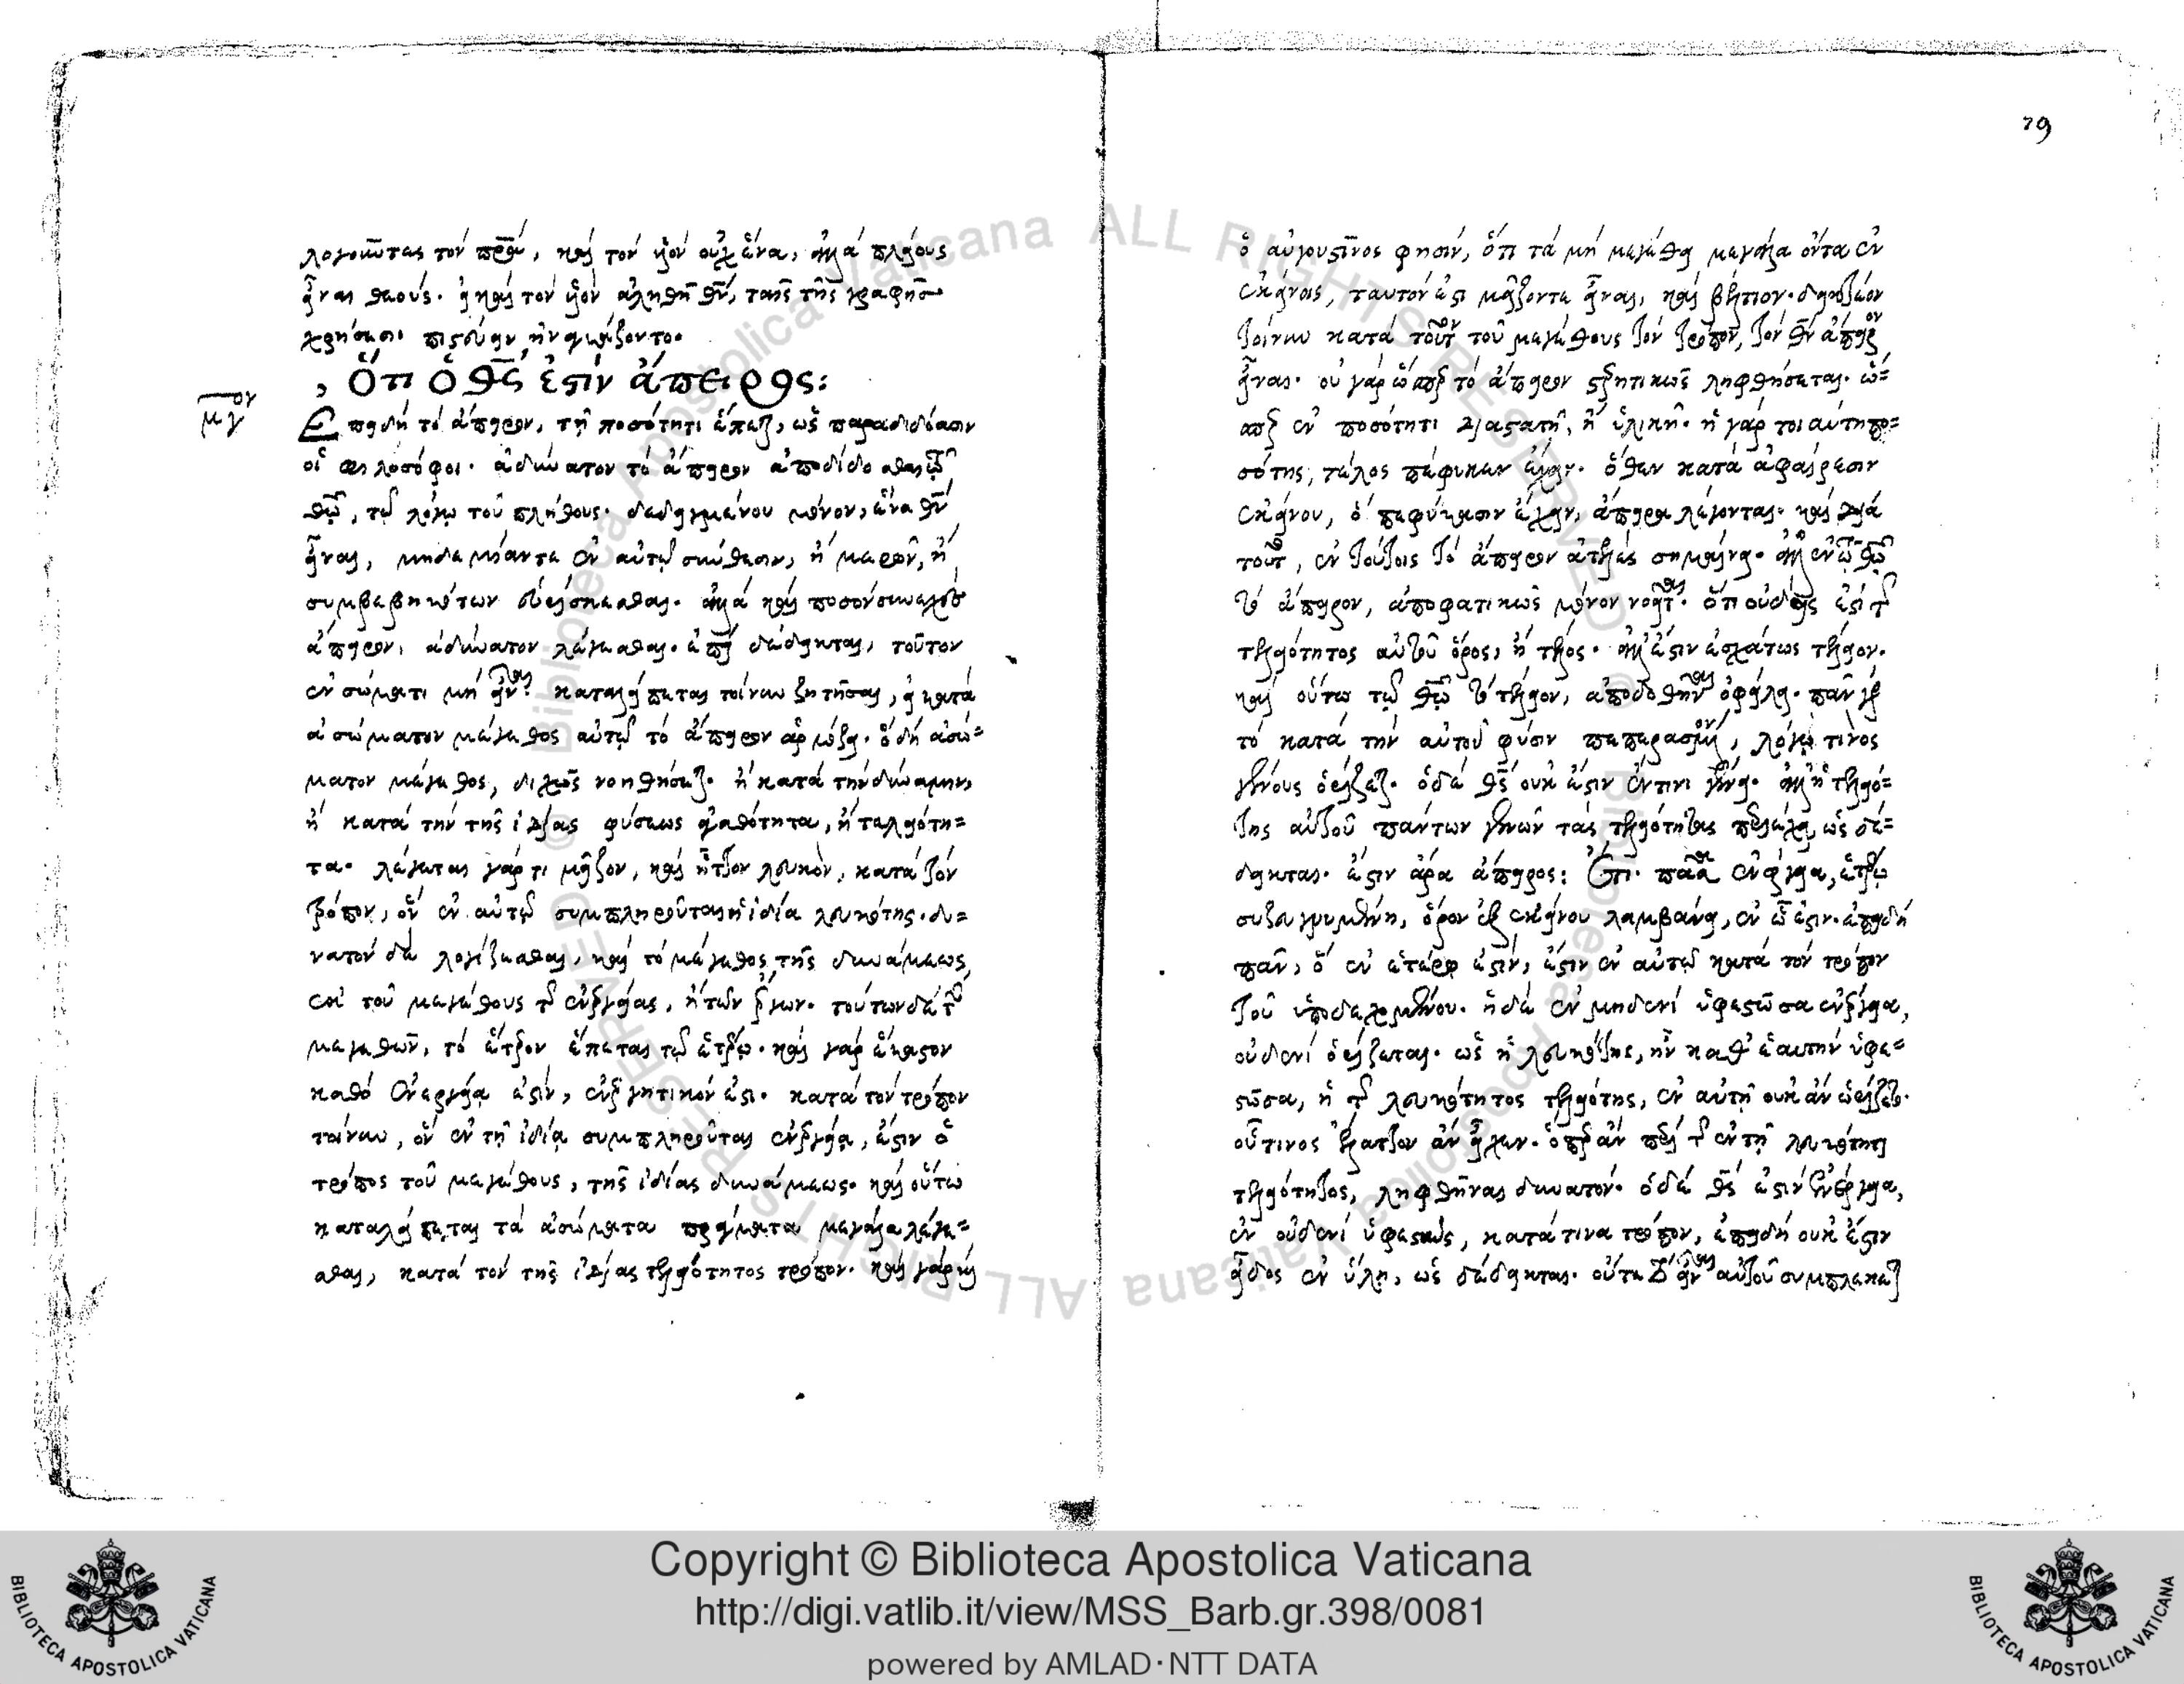 79
λογοῦντας τὸν πρα, καὶ τὸν υἱὸν οὐχ ἕνα, ἀλλὰ πλείους
εἶναι θεούς. εἰ καὶ τὸν υἱὸν ἀληθῆ θν, ταῖς τῆς γραφῆς
χρήσεσι πιστεύειν ἠναγκάζοντο.
Ὅτι ὁ θς ἐστὶν ἄπειρος:
μγον
Ἐπειδὴ τὸ ἄπειρον, τῇ ποσότητι ἕπεται, ὡς παραδιδόασιν
οἱ φιλοσόφοι. ἀδύνατον τὸ ἄπειρον ἀποδίδοσθαι τῷ
θῷ, τῷ λόγῳ τοῦ πλήθους. δεδειγμένου μόνον, ἕνα θν
εἶναι, μηδεμίαν τε ἐν αὐτῷ σύνθεσιν, ἢ μερῶν, ἢ
συμβεβηκότων εὑρίσκεσθαι. ἀλλὰ καὶ ποσὸν συνεχὲς
ἄπειρον, ἀδύνατον λέγεσθαι. ἐπεὶ δέδεικται, τοῦτον
ἐν σώματι μὴ εἶναι. καταλείπεται τοίνυν ζητῆσαι, εἰ κατὰ
ἀσώματον μέγεθος αὐτῷ τὸ ἄπειρον ἁρμόζει. ὃ δὴ ἀσώ=
ματον μέγεθος, διχῶς νοηθήσεται. ἢ κατὰ τὴν δύναμιν,
ἢ κατὰ τὴν τῆς ἰδίας φύσεως ἀγαθότητα, ἢ τελειότη=
τα. λέγεται γάρ τι μεῖζον, καὶ ἧττον λευκὸν, κατὰ τὸν
τρόπον, ὃν ἐν αὐτῷ συμπληροῦται ἡ ἰδία λευκότης. δυ=
νατὸν δὲ λογίζεσθαι, καὶ τὸ μέγεθος τῆς δυνάμεως,
ἐκ τοῦ μεγέθους τῆς ἐνεργείας, ἢ τῶν ἔργων. τούτων δὲ τῶν
μεγεθῶν, τὸ ἕτερον ἕπεται τῷ ἑτέρῳ. καὶ γὰρ ἕκαστον
καθὸ ἐνεργείᾳ ἐστὶν, ἐνεργητικόν ἐστι. κατὰ τὸν τρόπον
τοίνυν, ὃν ἐν τῇ ἰδίᾳ συμπληροῦται ἐνεργείᾳ, ἔστιν ὁ
τρόπος τοῦ μεγέθους, τῆς ἰδίας δυνάμεως. καὶ οὕτω
καταλείπεται τὰ ἀσώματα πράγματα μεγάλα λέγε=
σθαι, κατὰ τὸν τῆς ἰδίας τελειότητος τρόπον. καὶ γὰρ καὶ
ὁ αὐγουστῖνος φησὶν, ὅτι τὰ μὴ μεγέθει μεγάλα ὄντα ἐν
ἐκείνοις, ταυτόν ἐστι μείζοντα εἶναι, καὶ βέλτιον. δεικτέον
τοίνυν κατὰ τοῦτον τοῦ μεγέθους τὸν τρόπον, τὸν θν ἄπειρον
εἶναι. οὐ γὰρ ὥσπερ τὸ ἄπειρον στερητικῶς ληφθήσεται. ὥσ=
περ ἐν ποσότητι διαστατῇ, ἢ ὑλικῇ. ἡ γάρ τοι αὐτὴ πο=
σότης, τέλος πέφυκεν ἔχειν. ὅθεν κατὰ ἀφαίρεσιν
ἐκείνου, ὃ πεφύκασιν ἔχειν, ἄπειρα λέγονται. καὶ διὰ
τοῦτο, ἐν τούτοις τὸ ἄπειρον ἀτελὲς σημαίνει. ἀλλ' ἐν τῷ θῷ
τὸ ἄπειρον, ἀποφατικῶς μόνον νοεῖται. ὅτι οὐδείς ἐστι τῆς
τελειότητος αὐτοῦ ὅρος, ἢ τέλος. ἀλλ' ἔστιν ἐσχάτως τέλειον.
καὶ οὕτω τῷ θῷ τὸ τέλειον, ἀποδοθῆναι ὀφείλει. πᾶν γὰρ
τὸ κατὰ τὴν αὐτοῦ φύσιν πεπερασμένον, λόγῳ τινὸς
γένους ὁρίζεται. ὁ δὲ θς οὐκ ἔστιν ἔν τινι γένει. ἀλλ' ἡ τελειό=
της αὐτοῦ πάντων γενῶν τὰς τελειότητας περιέχει, ὡς δέ=
δεικται. ἔστιν ἄρα ἄπειρος: Ἔτι. πᾶσα ἐνέργεια, ἑτέρῳ
συζευγνυμένη, ὅρον ἐξ ἐκείνου λαμβάνει, ἐν ᾧ ἐστιν. ἐπειδὴ
πᾶν, ὃ ἐν ἑτέρῳ ἐστὶν, ἔστιν ἐν αὐτῷ κατὰ τὸν τρόπον
τοῦ ὑποδεχομένου. ἡ δὲ ἐν μηδενὶ ὑφεστῶσα ἐνέργεια,
οὐδενὶ ὁρίζεται. ὡς ἡ λευκότης, ἣν καθ' ἑαυτὴν ὑφε=
στῶσα, ἡ τῆς λευκότητος τελειότης, ἐν αὐτῇ οὐκ ἂν ὡρίζετο.
οὗτινος ἔλαττον ἂν εἶχεν. ὅπερ ἂν περὶ τῆς ἐν τῇ λευκότητι
τελειότητος, ληφθῆναι δυνατόν. ὁ δὲ θς ἐστὶν ἐνέργεια,
ἐν οὐδενὶ ὑφεστὼς, κατά τινα τρόπον, ἐπειδὴ οὐκ ἔστιν
εἶδος ἐν ὕλῃ, ὡς δέδεικται. οὔτε τὸ εἶναι αὐτοῦ συμπλέκεται
Copyright © Biblioteca Apostolica Vaticana
http://digi.vatlib.it/view/MSS_Barb.gr.398/0081
powered by AMLAD·NTT DATA
BIBLIOTECA APOSTOLICA VATICANA
BIBLIOTECA APOSTOLICA VATICANA